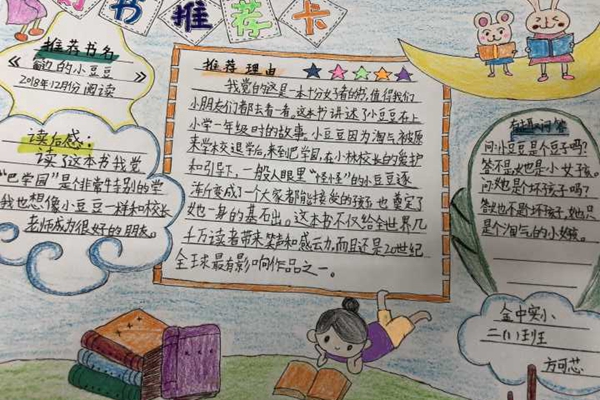 好书推荐卡
推荐书名
《窗边的小豆豆》
2018年12月份 阅读
读后感：
读了这本书我觉
"巴学园"是个非常特别的学
我也想像小豆豆一样和校长
老师成为很好的朋友。
推荐理由
我觉的这是一本十分好看的书，值得我们
小朋友们都去看一看，这本书讲述了小豆豆在上
小学一年级时的故事。小豆豆因为淘气被原
来学校退学后，来到巴学园，在小林校长的爱护
和引导下，一般人眼里"怪怪"的小豆豆逐
渐变成了一个大家都能接受的孩子也奠定了
她一身的基石出。这本书不仅给全世界几
千万读者带来笑声和感云力，而且还是20世纪
全球最有影响作品之一。
问答
问：小豆豆是个豆子吗？
答：不是，她是个小女孩。
问：她是个坏孩子吗？
答：她也不是坏孩子，她只
是个淘气的小女孩。
金中实小
二(1)班
方可芯